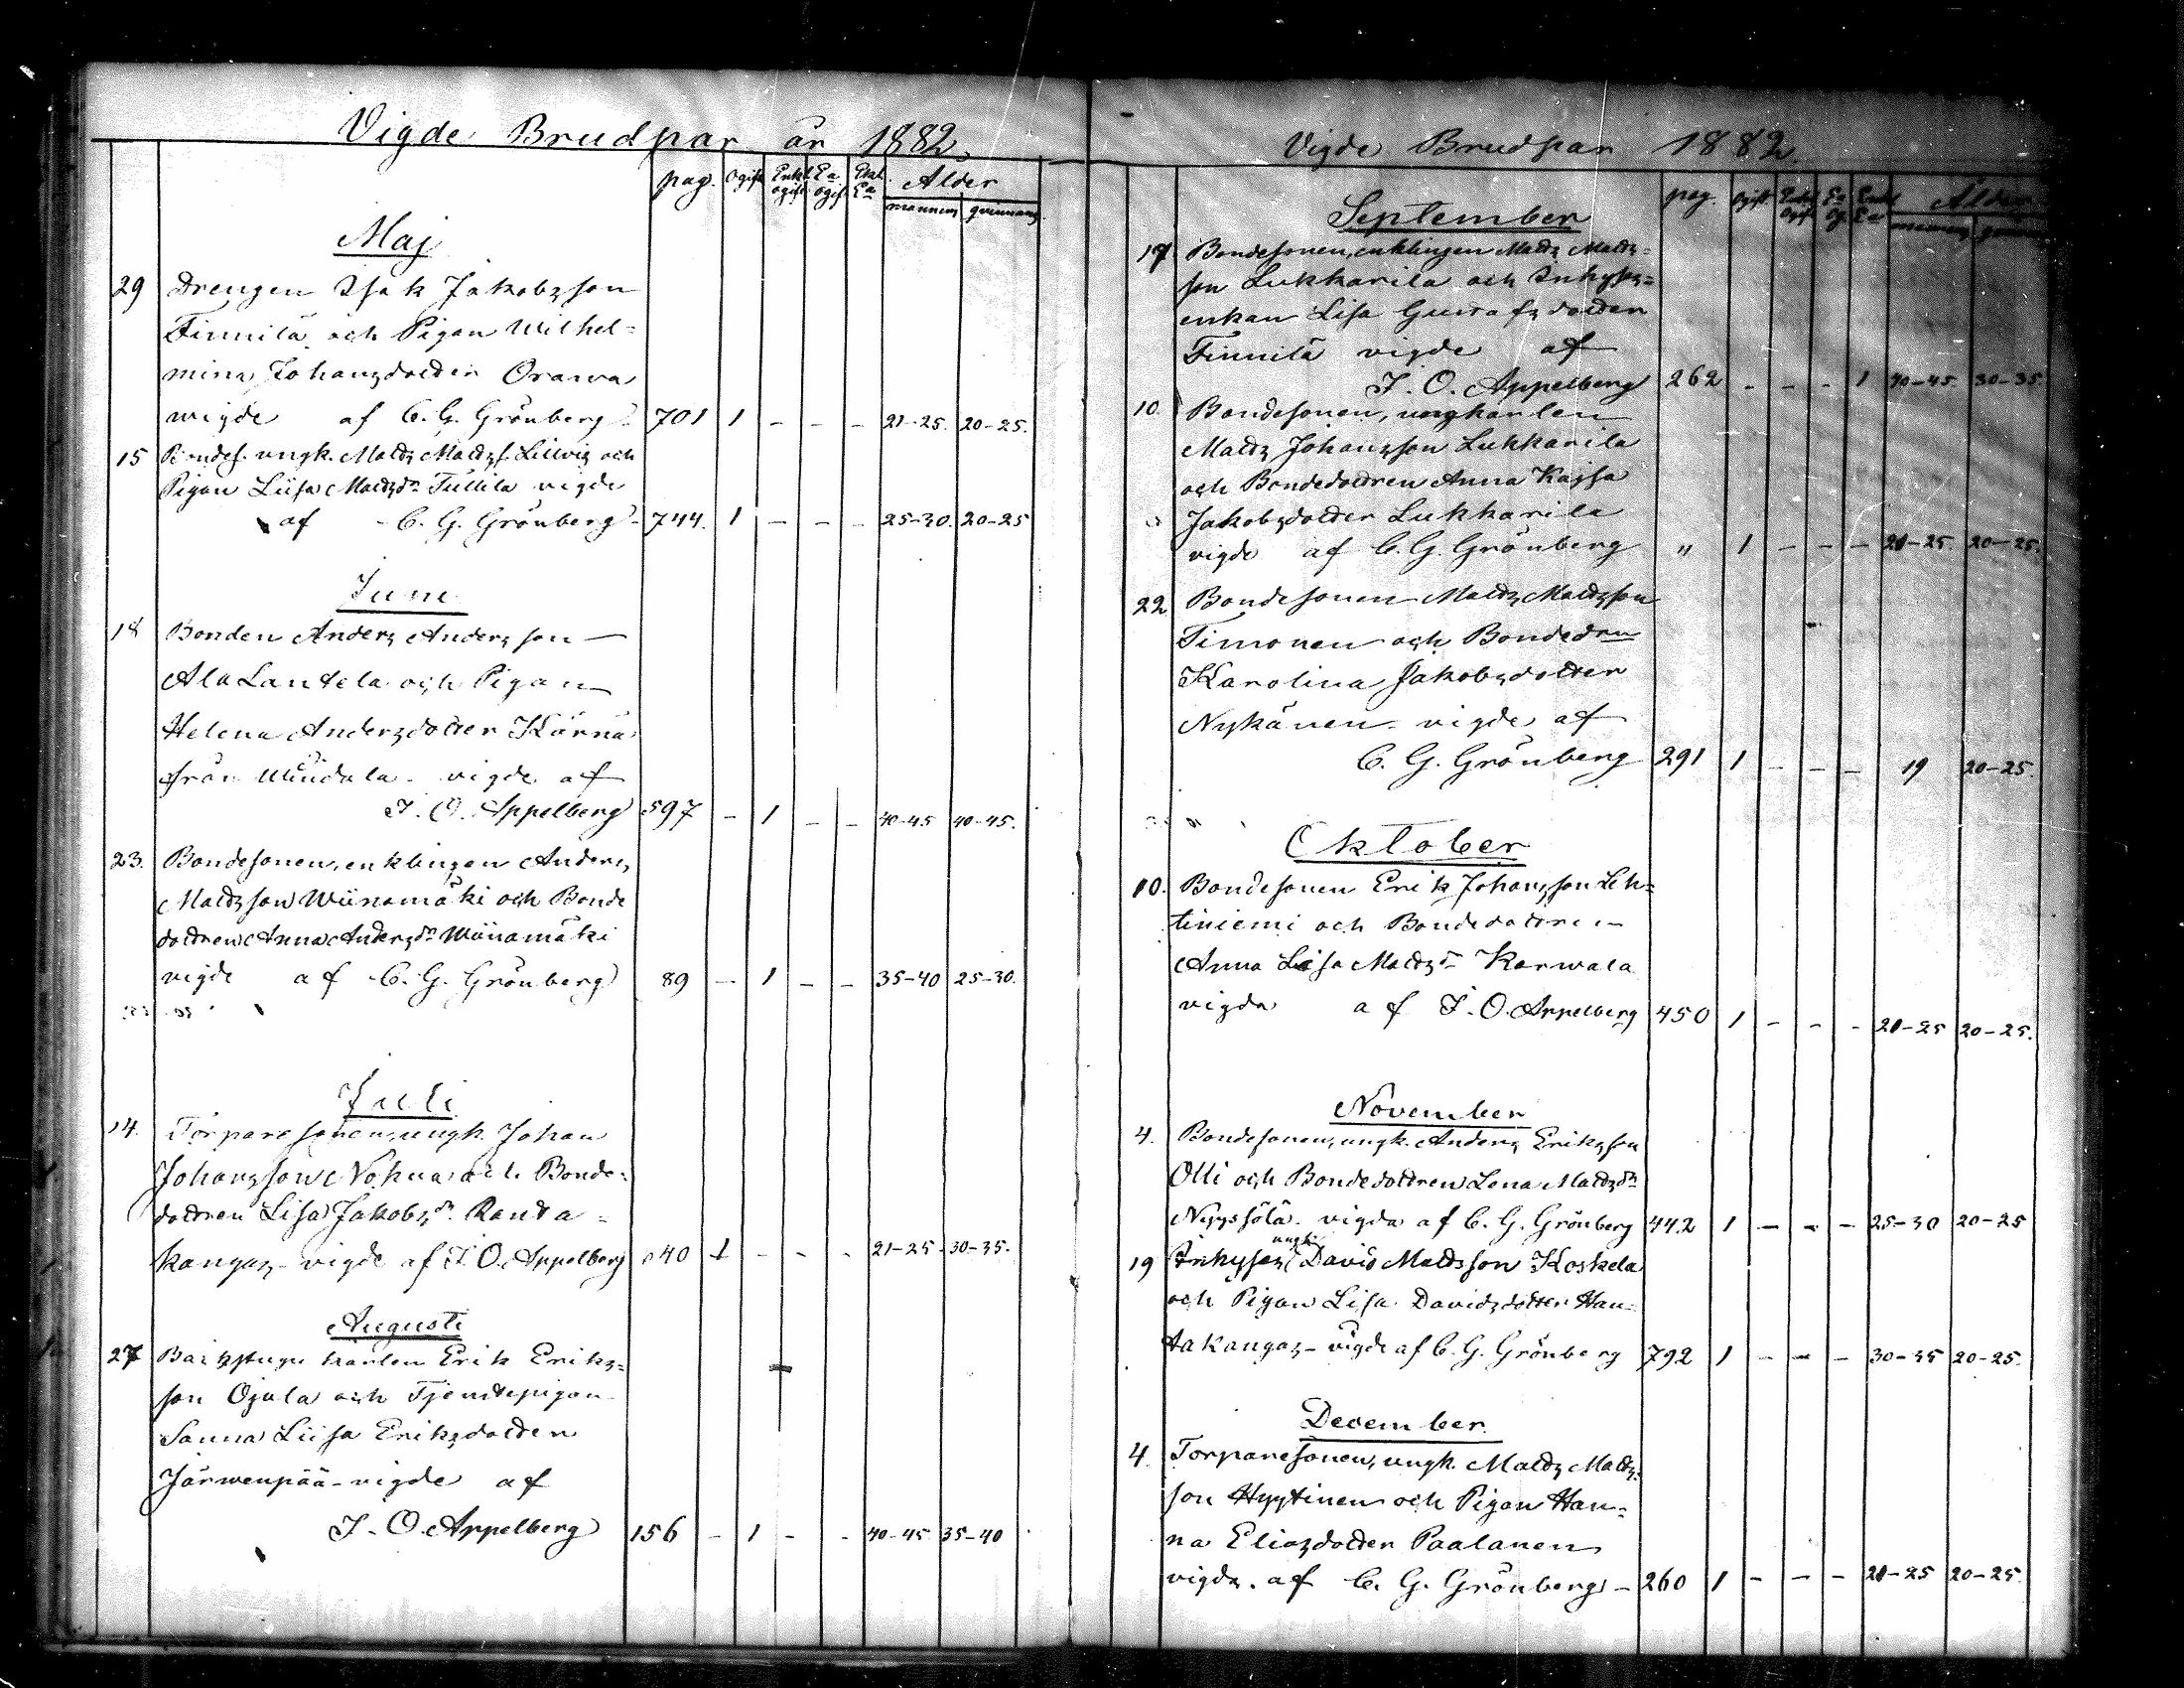 Vigde Brudpar år 1882.
pag. Ogift Enkl. ogift E:a ogift Enkl. E:a Ålder
mannens qvinnans
Maj
29 Drengen Isak Jakobsson
Finnilä och Pigan Wilhel=
mina Johansdotter Orawa
vigde af C. G. Grönberg 701 1 - - - 21-25. 20-25.
15 Bondes. ungk. Matts Mattss. Lillvis och
Pigan Liisa Mattsdr Tullila vigde
af C. G. Grönberg 744. 1 - - - 25-30. 20-25
Juni
18 Bonden Anders Andersson
Ala Lantela och Pigan
Helena Andersdotter Kärnä
från vigde af
J. O. Appelberg 597 - 1 - - 40-45 40-45.
23. Bondesonen, enklingen Anders
Mattsson Wiinamäki och Bonde
dottren Anna Andersdr Wiinamäki
vigde af C. G. Grönberg 89 - 1 - - 35-40 25-30.
Juli
14. Torparesonen, ungk. Johan
Johansson Nokua och Bonde=
dottren Lisa Jakobsdr. Ranta=
kangas - vigde af J. O. Appelberg 40 1 - - - 21-25 30-35.
Augusti
27 Backstugukarlen Erik Eriks=
son Ojala och Tjenstepigan
Sanna Liisa Eriksdotter
Järwenpää - vigde af
J. O. Appelberg 156 - 1 - - 40-45 35-40
Vigde Brudpar 1882.
pag. Ogift Enkl. Ogift E:a Og. Enkl. E:a Ålder
mannens qvinnans
September
17 Bondesonen, enklingen Matts Matts=
son Lukkarila och Inhyses=
enkan Lisa Gustafsdotter
Finnilä vigde af
J. O. Appelberg 262 - - - 1 40-45. 30-35.
10. Bondesonen, ungkarlen
Matts Johansson Lukkarila
och Bondedottren Anna Kajsa
Jakobsdotter Lukkarila
vigde af C. G. Grönberg " 1 - - - 21-25. 20-25.
22. Bondesonen Matts Mattsson
Timonen och Bondedrn
Karolina Jakobsdotter
Nykänen - vigde af
C. G. Grönberg 291 1 - - - 19 20-25.
Oktober
10. Bondesonen Erik Johansson Leh=
tiniemi och Bondedottren
Anna Lisa Mattsdr Karwala
vigda af J. O. Appelberg 450 1 - - - 21-25 20-25.
November
4. Bondesonen, ungk. Anders Eriksson
Olli och Bondedottren Lena Mattsdr
Nyyssölä. vigda af C. G. Grönberg 442 1 - - - 25-30 20-25
ungk.
19 Inhyses, David Mattsson Koskela
och Pigan Lisa Davidsdotter Hau=
takangas - vigde af C. G. Grönberg 792 1 - - - 30-35 20-25.
December.
4. Torparesonen, ungk. Matts Matts=
son Hyytinen och Pigan Han=
na Eliasdotter Paalanen
vigda. af C. G. Grönberg - 260 1 - - - 21-25 20-25.